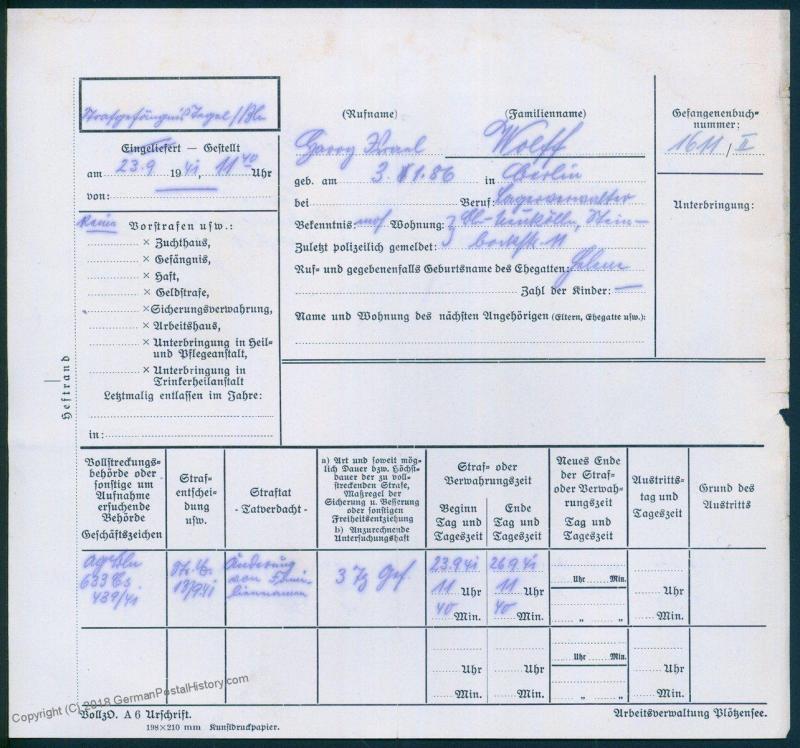 Strafgefängnis Tegel/Bln
Eingeliefert — Gestellt
am 23.9 1941, 11 40 Uhr
von:
Keine Vorstrafen usw.:
× Zuchthaus,
× Gefängnis,
× Haft,
× Geldstrafe,
× Sicherungsverwahrung,
× Arbeitshaus,
× Unterbringung in Heil-
und Pflegeanstalt,
× Unterbringung in
Trinkerheilanstalt
Letztmalig entlassen im Jahre:
in:
Heftrand
(Rufname) (Familienname)
Harry Israel Wolff
geb. am 3. 86 in Berlin
bei Beruf: Lagerverwalter
Bekenntnis: mos Wohnung: Bln-Neukölln, Stein-
Zuletzt polizeilich gemeldet: bockstr. 11
Ruf- und gegebenenfalls Geburtsname des Ehegatten: Helene
Zahl der Kinder: —
Name und Wohnung des nächsten Angehörigen (Eltern, Ehegatte usw.):
Gefangenenbuch-
nummer:
1611/II
Unterbringung:
Vollstreckungs-
behörde oder
sonstige um
Aufnahme
ersuchende
Behörde
Geschäftszeichen
Straf-
entschei-
dung
usw.
Straftat
- Tatverdacht -
a) Art und soweit mög-
lich Dauer bzw. Höchst-
dauer der zu voll-
streckenden Strafe,
Maßregel der
Sicherung u. Besserung
oder sonstigen
Freiheitsentziehung
b) Anzurechnende
Untersuchungshaft
Straf- oder
Verwahrungszeit
Beginn
Tag und
Tageszeit
Ende
Tag und
Tageszeit
Neues Ende
der Straf-
oder Verwah-
rungszeit
Tag und
Tageszeit
Austritts-
tag und
Tageszeit
Grund des
Austritts
AgBln
633 Cs
439/41
13/9 41
Änderung
von Fami-
liennamen
3 Tg Gef.
23 9 41
11 Uhr
40 Min.
26 9 41
11 Uhr
40 Min.
Uhr Min.
„ „
Uhr
Min.
Uhr
Min.
Uhr
Min.
Uhr Min.
„ „
Uhr
Min.
VollzO. A 6 Urschrift.
198×210 mm Kunstdruckpapier.
Arbeitsverwaltung Plötzensee.
Copyright (C) 2018 GermanPostalHistory.com